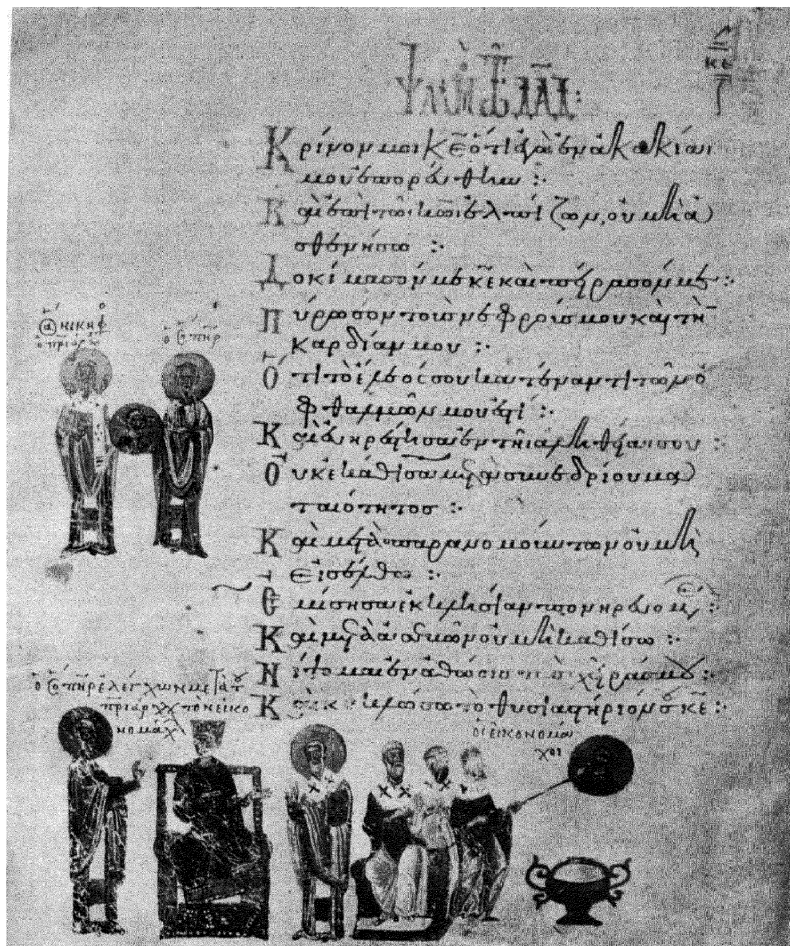 κε
Κρίνόν μοι κ̅ε̅ ὅτι ἐγὼ ἐν ἀκακίαι
μου ἐπορεύθην :·
Καὶ ἐπὶ τῶ κ̅ω̅ ἐλπίζων, οὐ μὴ ἀ
σθενήσω :·
Δοκίμασόν με κ̅ε̅ καὶ πείρασόν με :·
Πύρωσον τοὺς νεφρούς μου καὶ τὴ̅
καρδίαν μου :·
Ὅτι τὸ ἔλεός σου κατέναντι τῶν ὀ
φθαλμῶν μου ἐστί :·
Καὶ εὐηρέστησα ἐν τῆι ἀληθείαι σου :
Οὐκ ἐκάθισα μετὰ συνεδρίου μα
ταιότητος :·
Καὶ μετὰ παρανομούντων οὐ μὴ
εἰσέλθω :·
Ἐμίσησα ἐκκλησίαν πονηρευομ :·
Καὶ μετὰ ἀ οὐ μὴ καθίσω :·
Νίψομαι ἐν ἀθώοις χεῖράς μου :·
κυκλώσω τὸ θυσιαστήριόν κ̅ε̅ :·
νικηφ
ὁ π̅ριάρχ
ὁ ὅ π̅ηρ
ὁ ὅ π̅ηρ ἐλέγχων μετὰ τοῦ
π̅ριάρχχ τὸν εἰκο
νομάχ
οἱ εἰκονομά
χοι